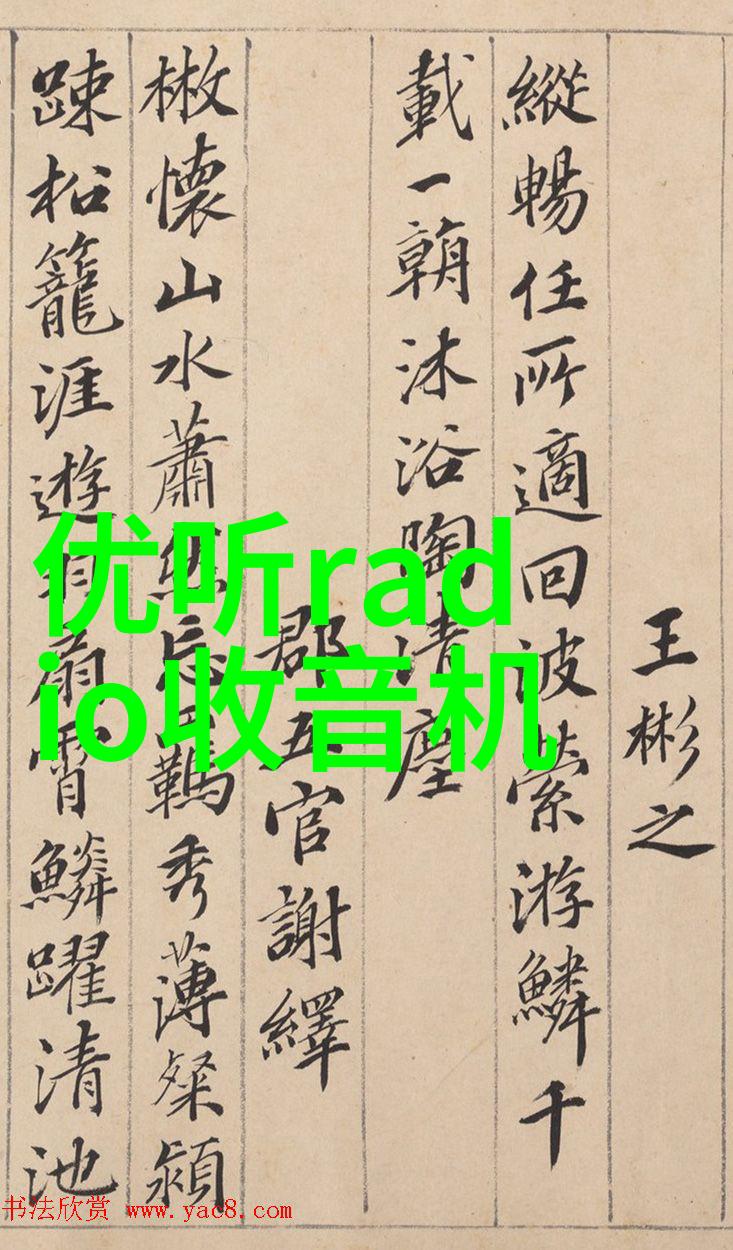 王彬之
縱暢任所適回波縈游鱗千
載一朝沐浴陶清塵
郡五官謝繹
散懷山水蕭然忘羈秀薄粲潁
踈松籠涯遊羽扇霄鱗躍清池
优听rad
io收音机
书法欣赏 www.yac8.com